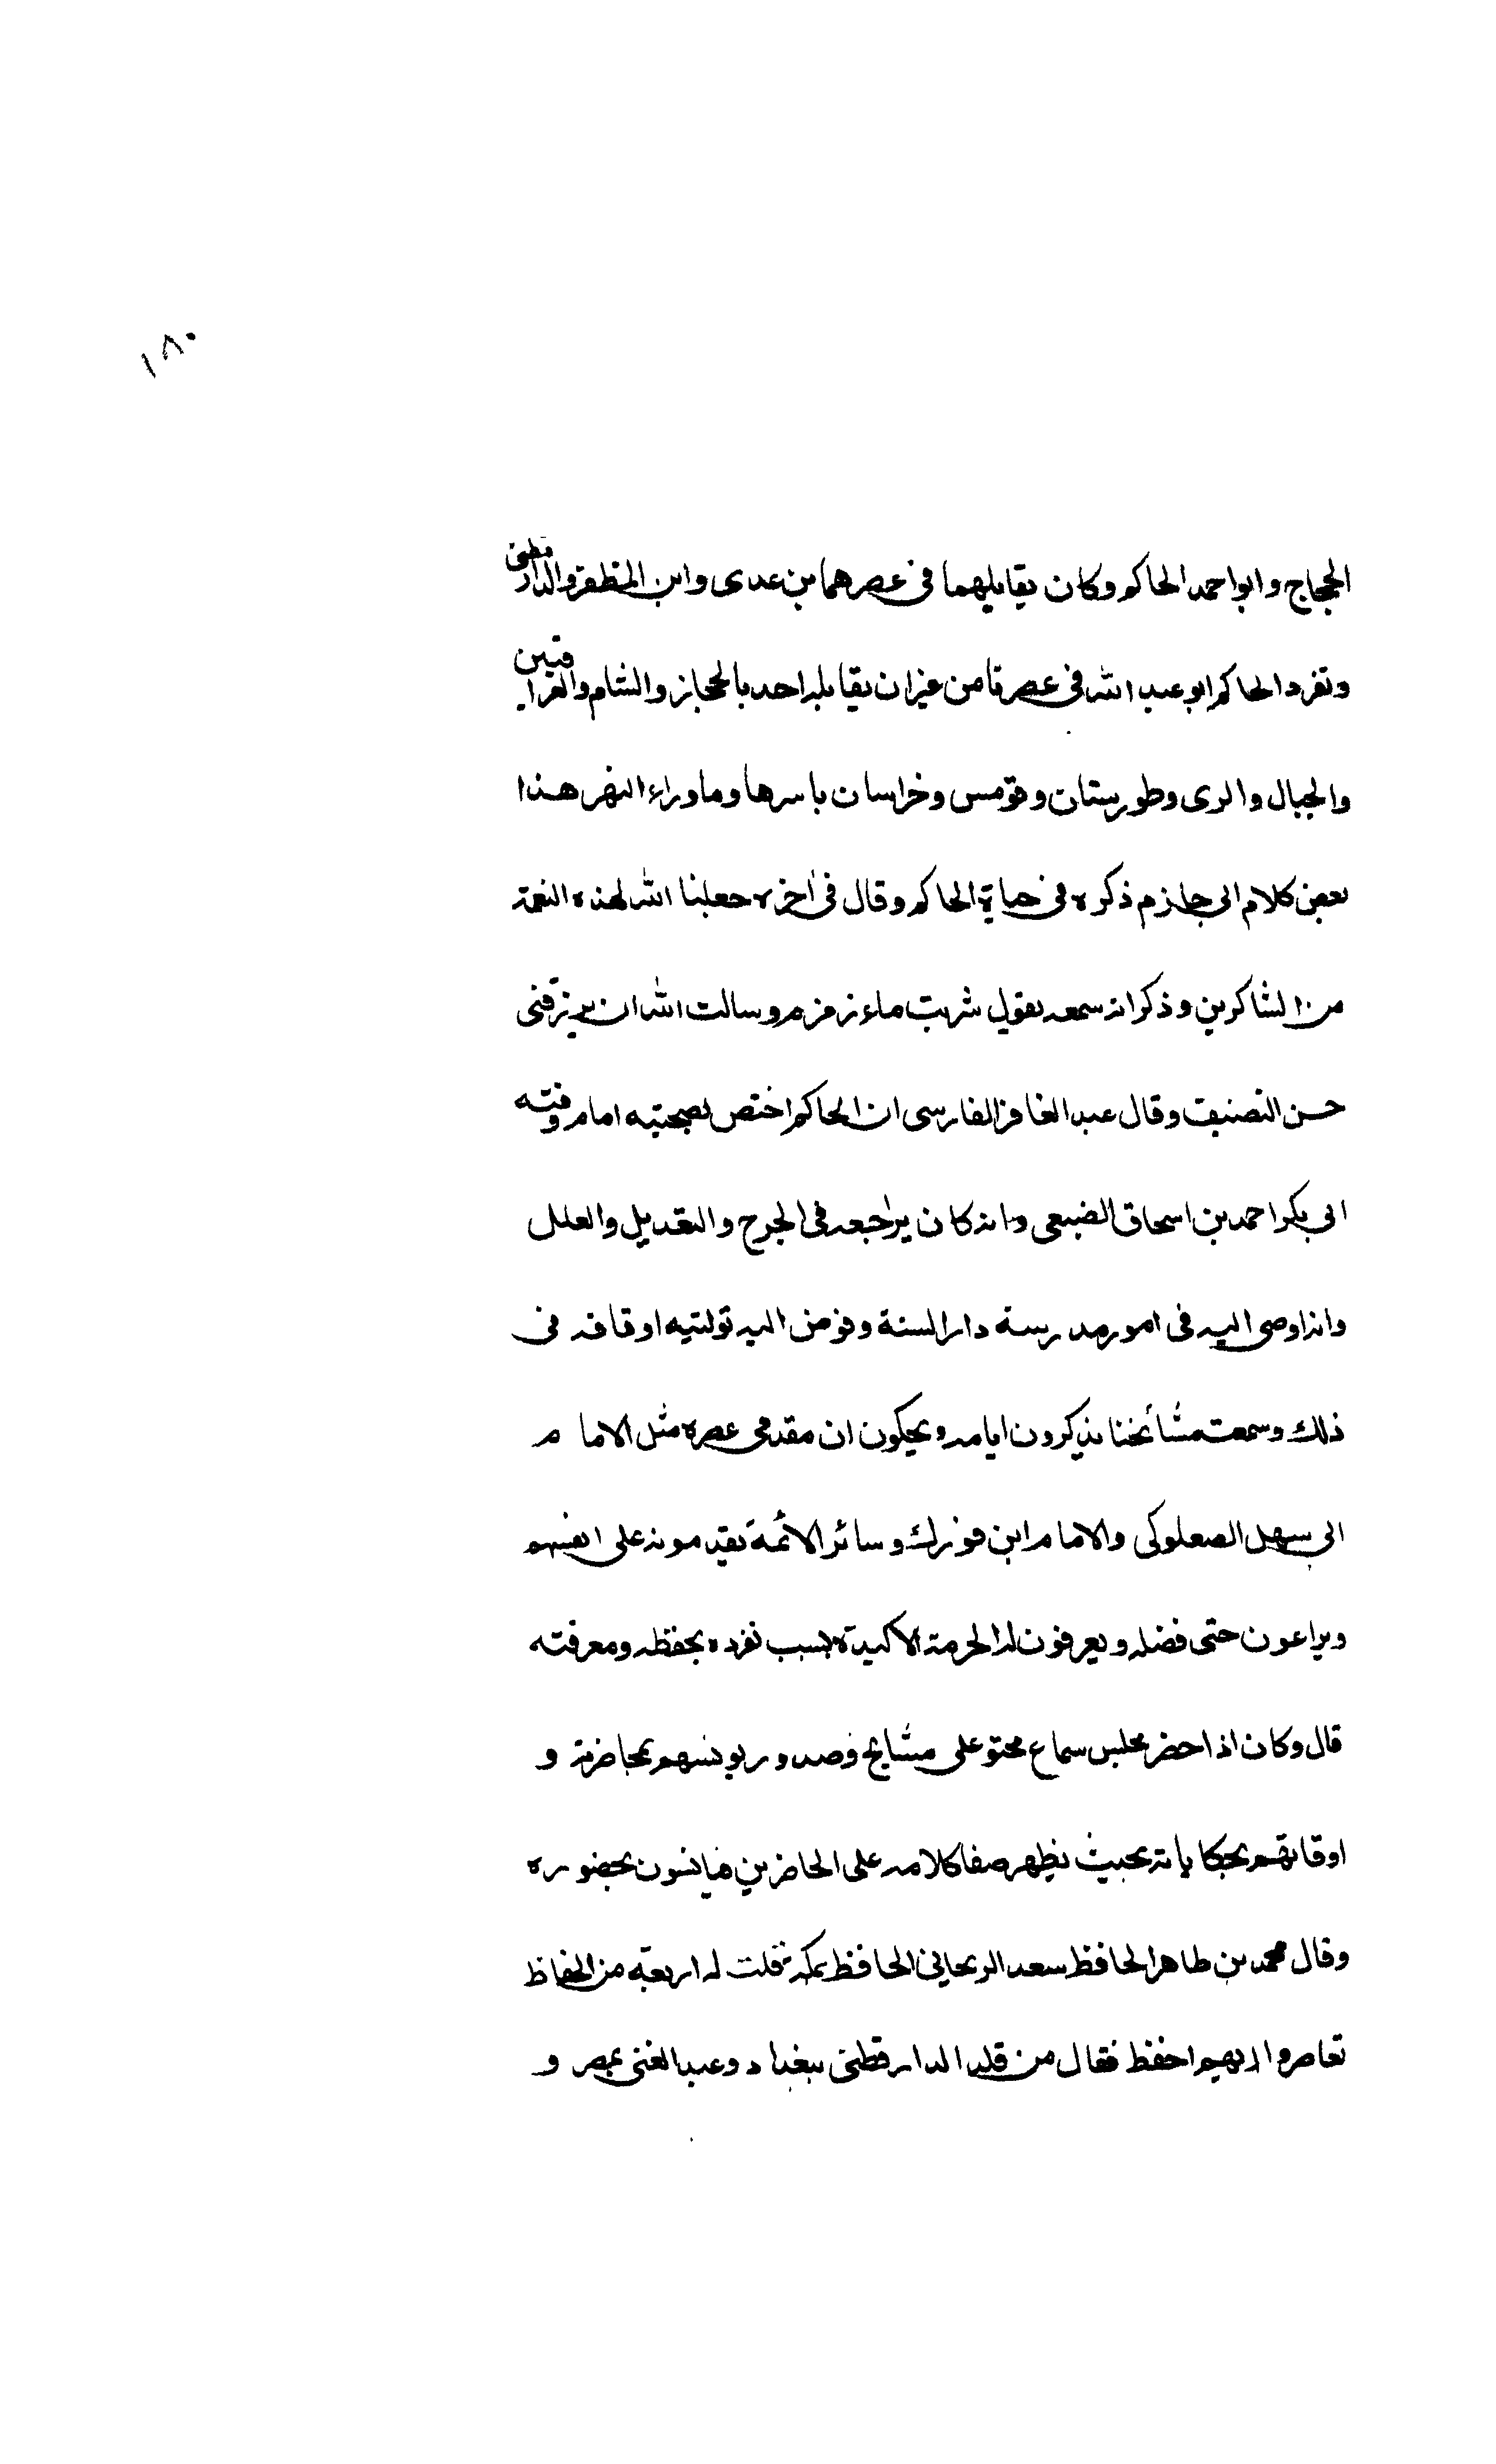 ١٨٠
الحجاج وابو احمد الحاكم وكان يقابلهما فى عصرهما بن عدى وابن المظفر والدارقطنى
وتفرد الحاكم ابو عبد الله فى عصرنا من غير ان يقابله احد بالحجاز والشام والعراقين
والجبال والرى وطورستان وقومس وخراسان باسرها وما وراء النهر هذا
بعض كلام ابى حازم ذكره فى حياة الحاكم وقال فى آخره جعلنا الله لهذه النعمة
من الشاكرين وذكر انه سمعه يقول شربت ماء زمزم وسالت الله ان يرزقنى
حسن التصنيف وقال عبد الغافر الفارسى ان الحاكم اختص بصحبته امام وقته
ابى بكر احمد بن اسحاق الضبعى وانه كان يراجعه فى الجرح والتعديل والعلل
وانه اوصى اليه فى امور مدرسة دار السنة وفوض اليه توليته اوقافه فى
ذلك وسمعت مشائخنا يذكرون ايامه ويحكون ان مقدمى عصره مثل الامام
ابى سهل الصعلوكى والامام ابن فورك وسائر الائمة يقدمونه على انفسهم
ويراعون حتى فضله ويعرفون له الحرمة الاكيدة بسبب تفرده بحفظه ومعرفته
قال وكان اذا حضر مجلس سماع محتو على مشايخ وصدور يونسهم بمحاضرته و
اوقاتهم بحكاياته بحيث يظهر صفا كلامه على الحاضرين فيانسون بحضوره
وقال محمد بن طاهر الحافظ سعد الريحانى الحافظ بمكة قلت له اربعة من الحفاظ
تعاصروا ايهم احفظ فقال من قلت الدارقطنى ببغداد وعبد الغنى بمصر و